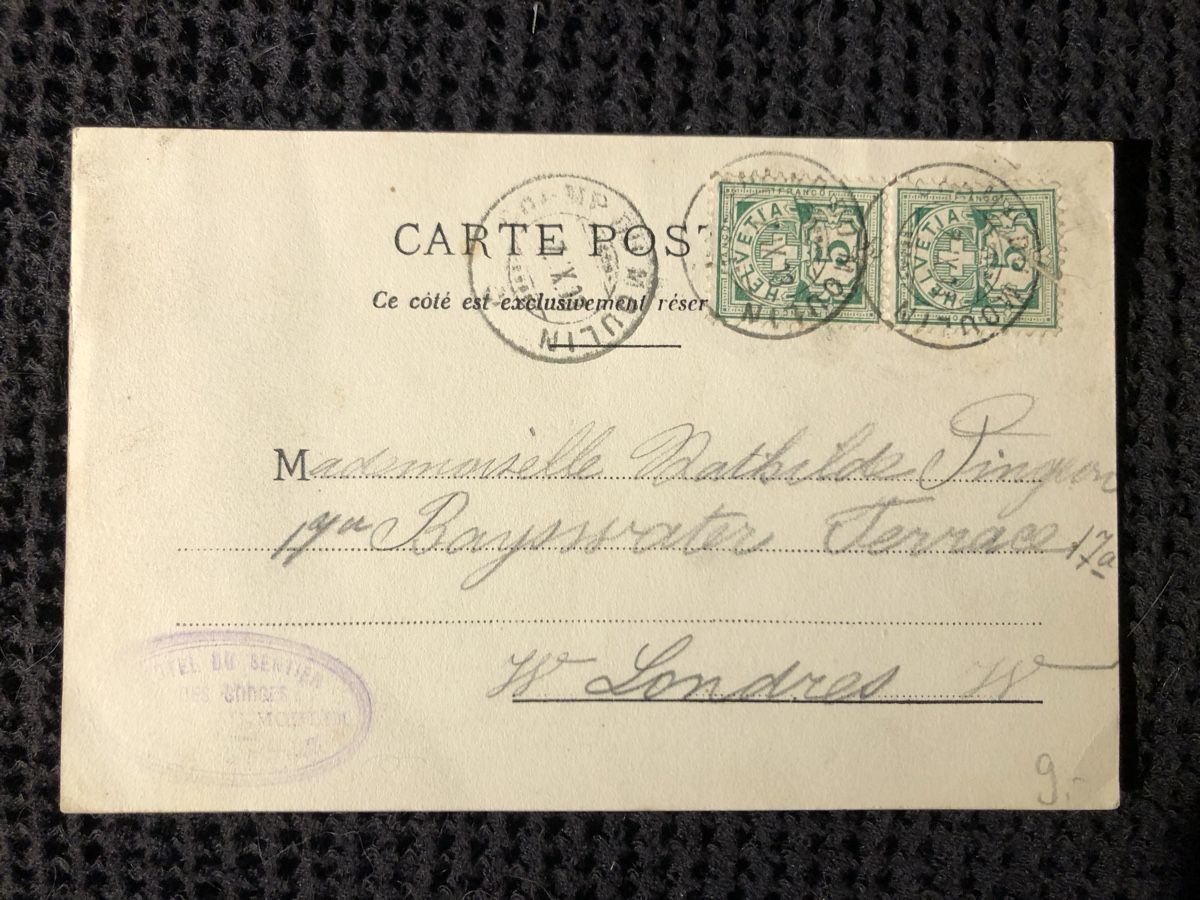 CARTE POST
Ce côté est exclusivement réser
FRANCO
HELVETIA
5
FRANCO
HELVETIA
5
CHAMP DU MOULIN
MOULIN
MOULIN
Mademoiselle Mathilde Pingeon
Bayswater Terrace 17a
W Londres W
HOTEL DU SENTIER
DES GORGES
9.-